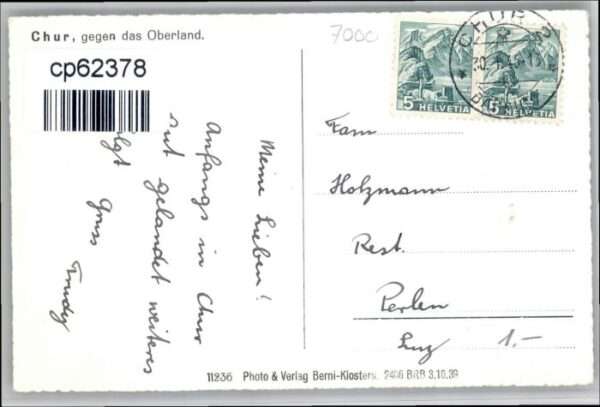 Chur, gegen das Oberland.
7000
cp62378
CHUR
5 HELVETIA
5 HELVETIA
Meine Lieben!
Anfangs in Chur
gut gelandet weiteres
folgt
Gruss
Trudy
Fam
Holzmann
Rest.
Perlen
Luz
1.-
11236 Photo & Verlag Berni-Klosters. 2466 BRB 3.10.39